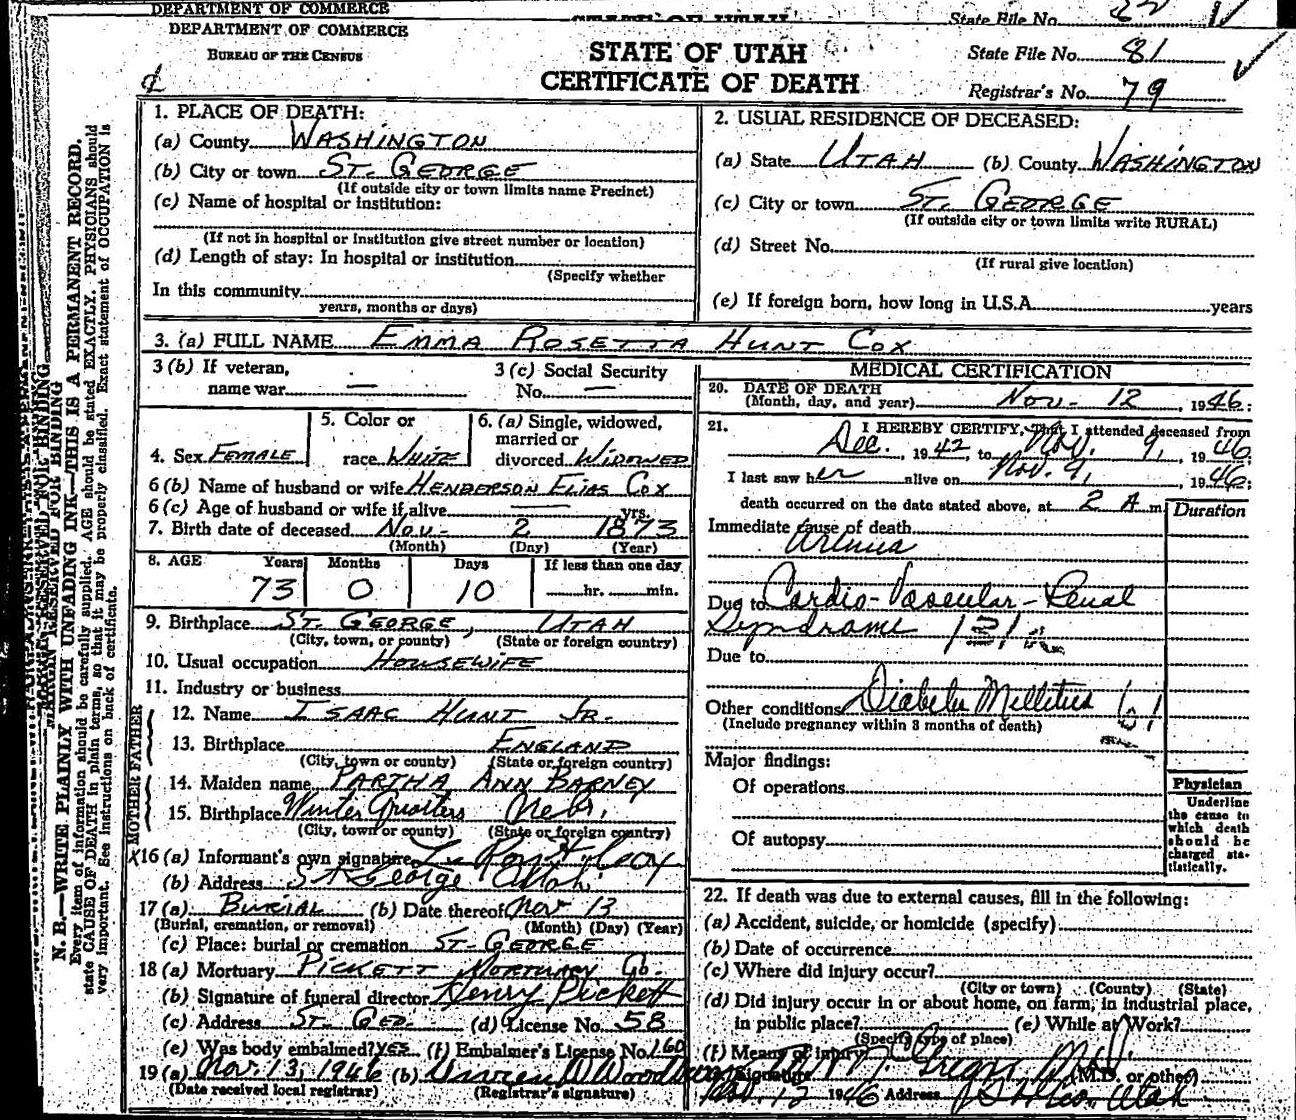 DEPARTMENT OF COMMERCE
STATE OF UTAH
State File No.
DEPARTMENT OF COMMERCE
BUREAU OF THE CENSUS
STATE OF UTAH
CERTIFICATE OF DEATH
State File No. 81
Registrar's No. 79
N. B.—WRITE PLAINLY WITH UNFADING INK—THIS IS A PERMANENT RECORD.
Every item of information should be carefully supplied. AGE should be stated EXACTLY. PHYSICIANS should
state CAUSE OF DEATH in plain terms, so that it may be properly classified. Exact statement of OCCUPATION is
very important. See instructions on back of certificate.
1. PLACE OF DEATH:
(a) County WASHINGTON
(b) City or town ST. GEORGE
(If outside city or town limits name Precinct)
(c) Name of hospital or institution:
(If not in hospital or institution give street number or location)
(d) Length of stay: In hospital or institution
(Specify whether
In this community
years, months or days)
2. USUAL RESIDENCE OF DECEASED:
(a) State UTAH (b) County WASHINGTON
(c) City or town ST. GEORGE
(If outside city or town limits write RURAL)
(d) Street No.
(If rural give location)
(e) If foreign born, how long in U.S.A. years
3. (a) FULL NAME EMMA ROSETTA HUNT COX
3 (b) If veteran,
name war —
3 (c) Social Security
No. —
4. Sex FEMALE
5. Color or
race WHITE
6. (a) Single, widowed,
married or
divorced WIDOWED
6 (b) Name of husband or wife HENDERSON ELIAS COX
6 (c) Age of husband or wife if alive — yrs.
7. Birth date of deceased Nov- 2 1873
(Month) (Day) (Year)
8. AGE Years Months Days If less than one day
73 0 10 hr. min.
9. Birthplace ST. GEORGE, UTAH
(City, town, or county) (State or foreign country)
10. Usual occupation HOUSEWIFE
11. Industry or business
FATHER
12. Name ISAAC HUNT JR.
13. Birthplace ENGLAND
(City, town or county) (State or foreign country)
MOTHER
14. Maiden name PARTHA ANN BARNEY
15. Birthplace Winter Quarters Nebr.
(City, town or county) (State or foreign country)
X16 (a) Informant's own signature Cox
(b) Address St George Utah
17 (a) BURIAL (b) Date thereof Nov 13
(Burial, cremation, or removal) (Month) (Day) (Year)
(c) Place: burial or cremation ST- GEORGE
18 (a) Mortuary PICKETT MORTUARY Co.
(b) Signature of funeral director Henry Pickett
(c) Address ST. GEO. (d) License No. 58
(e) Was body embalmed? YES (f) Embalmer's License No. 160
19 (a) Nov. 13, 1946 (b)
(Date received local registrar) (Registrar's signature)
MEDICAL CERTIFICATION
20. DATE OF DEATH
(Month, day, and year) Nov- 12, 1946.
21. I HEREBY CERTIFY, That I attended deceased from
Dec. , 1942 to Nov. 9, 1946
I last saw her alive on Nov. 9, 1946;
death occurred on the date stated above, at 2 A m.
Duration
Immediate cause of death
Uremia
Due to Cardio-Vascular-Renal
Syndrome 131
Due to
Other conditions Diabetes Mellitus 61
(Include pregnancy within 3 months of death)
Major findings:
Of operations
Of autopsy
Physician
Underline
the cause to
which death
should be
charged sta-
tistically.
22. If death was due to external causes, fill in the following:
(a) Accident, suicide, or homicide (specify)
(b) Date of occurrence
(c) Where did injury occur?
(City or town) (County) (State)
(d) Did injury occur in or about home, on farm, in industrial place,
in public place? (e) While at Work?
(Specify type of place)
(f) Means of injury
Signature (M.D. or other)
Nov. 12 1946 Address St. George, Utah